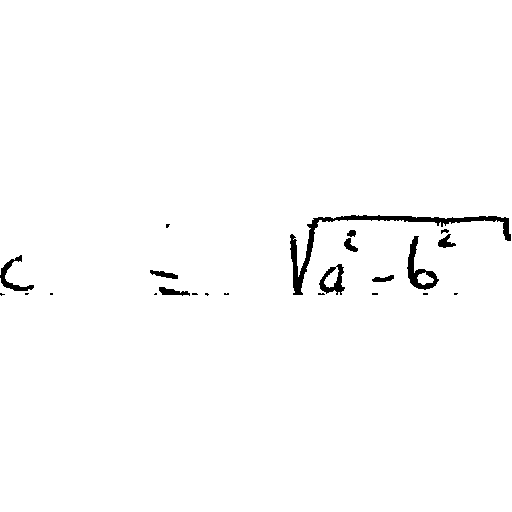 c = √(a² - b²)